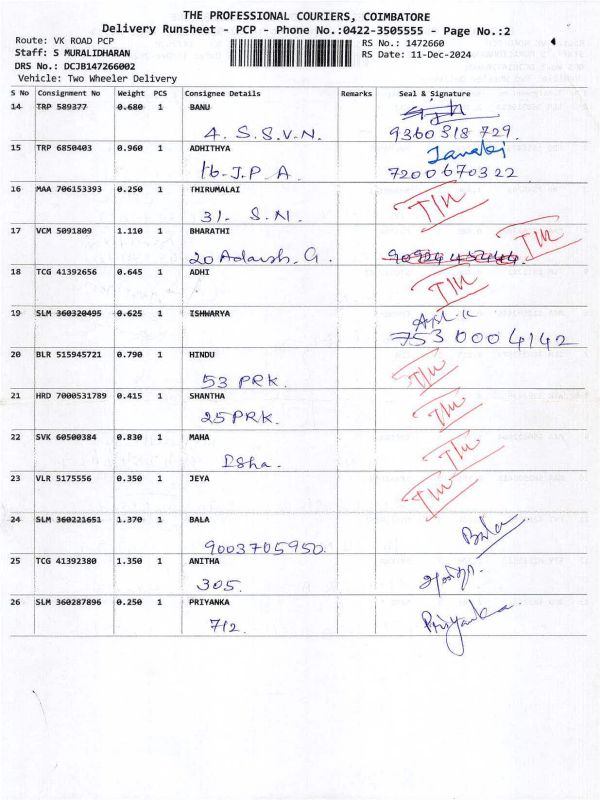 THE PROFESSIONAL COURIERS, COIMBATORE
Delivery Runsheet - PCP - Phone No.:0422-3505555 - Page No.:2
Route: VK ROAD PCP RS No.: 1472660
Staff: S MURALIDHARAN RS Date: 11-Dec-2024
DRS No.: DCJB147266002
Vehicle: Two Wheeler Delivery
S No Consignment No Weight PCS Consignee Details Remarks Seal & Signature
14 TRP 589377 0.680 1 BANU
4. S.S.V.N. 9360318729.
15 TRP 6850403 0.960 1 ADHITHYA Janaki
16-J.P.A. 7200670322
16 MAA 706153393 0.250 1 THIRUMALAI
31. S.N.
17 VCM 5091809 1.110 1 BHARATHI
20 Adarsh. G.
18 TCG 41392656 0.645 1 ADHI
19 SLM 360320495 0.625 1 ISHWARYA
7530004142
20 BLR 515945721 0.790 1 HINDU
53 PRK.
21 HRD 7000531789 0.415 1 SHANTHA
25 PRK.
22 SVK 60500384 0.830 1 MAHA
Isha.
23 VLR 5175556 0.350 1 JEYA
24 SLM 360221651 1.370 1 BALA Bala
9003705950.
25 TCG 41392380 1.350 1 ANITHA
305.
26 SLM 360287896 0.250 1 PRIYANKA Priyanka.
712.